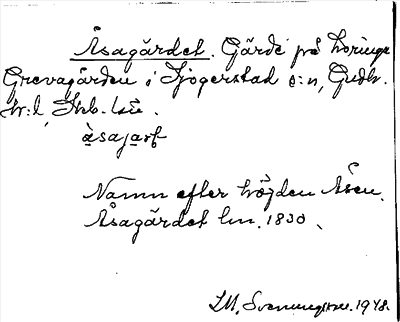 Åsagärdet. Gärde på
Grevagården i Sjogerstad s:n, Gudh.
hr:d, Skb. län.
åsajaṟ
Namn efter höjden Åsen.
Åsagärdet lm. 1830.
I.M. Svenungsson. 1948.